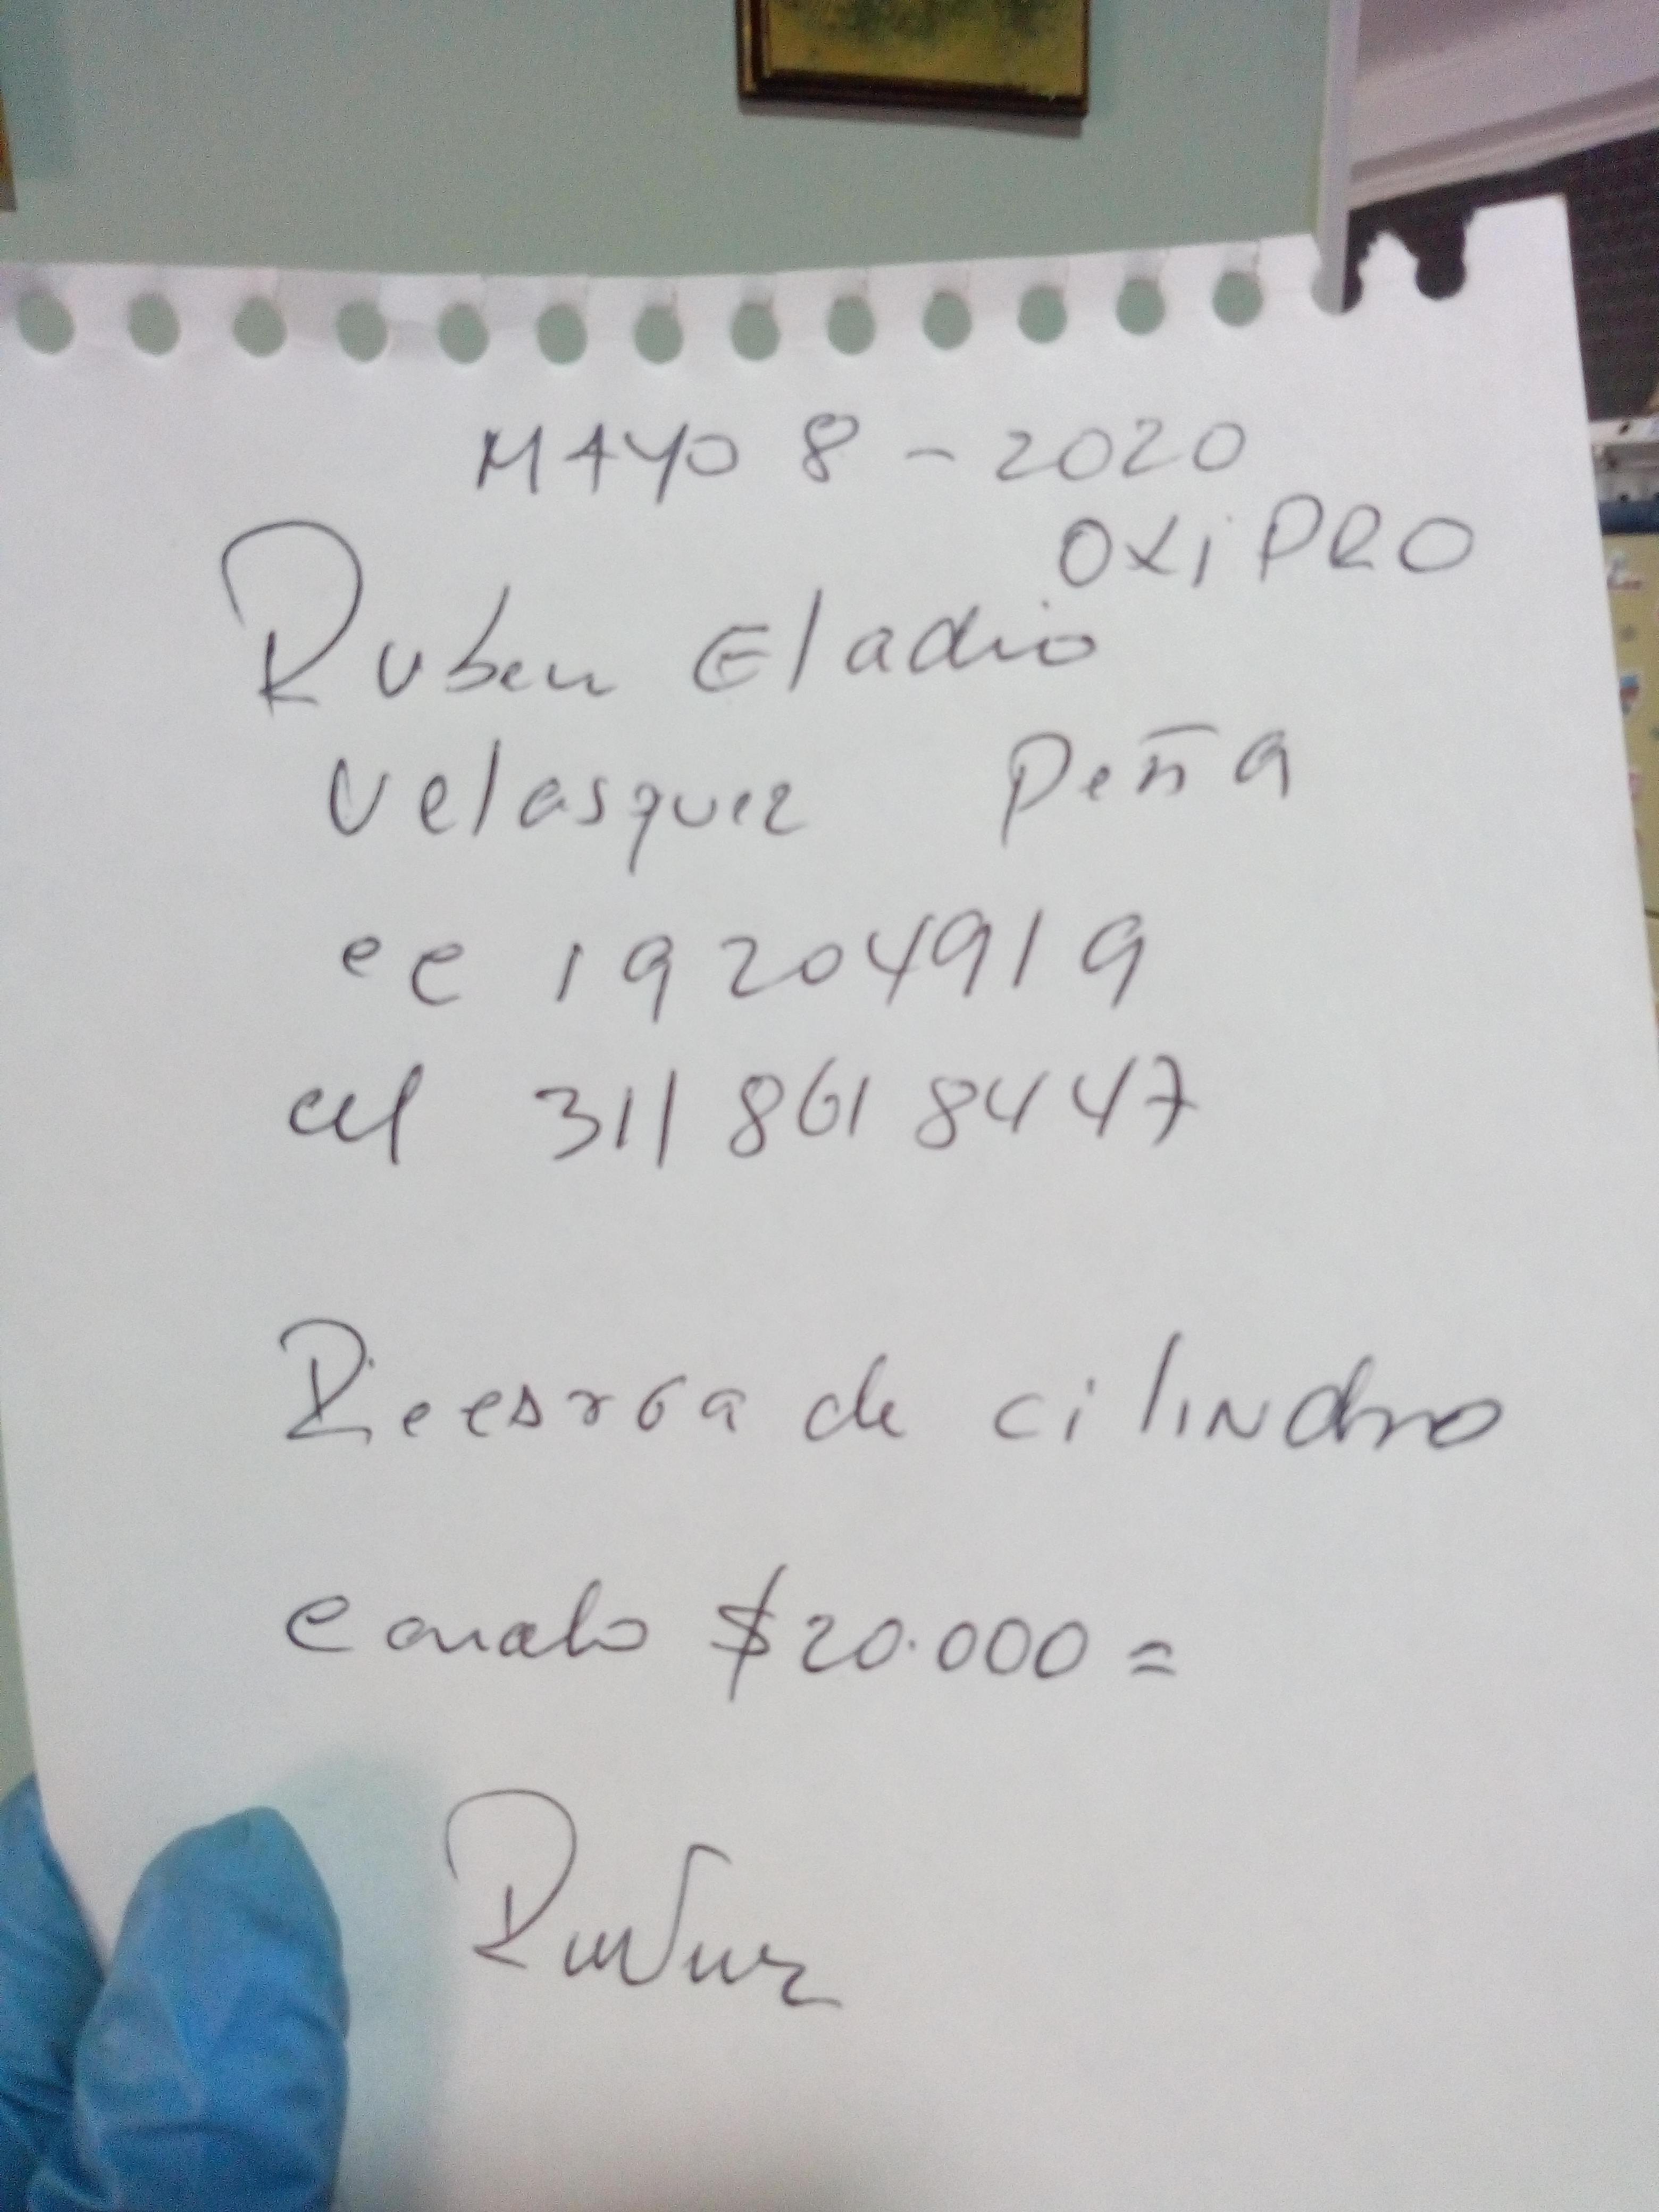 MAYO 8 - 2020
OXiPRO
Ruben Eladio
Velasquez Peña
cc 19204919
cel 311 861 8447
de cilindro
$20.000=